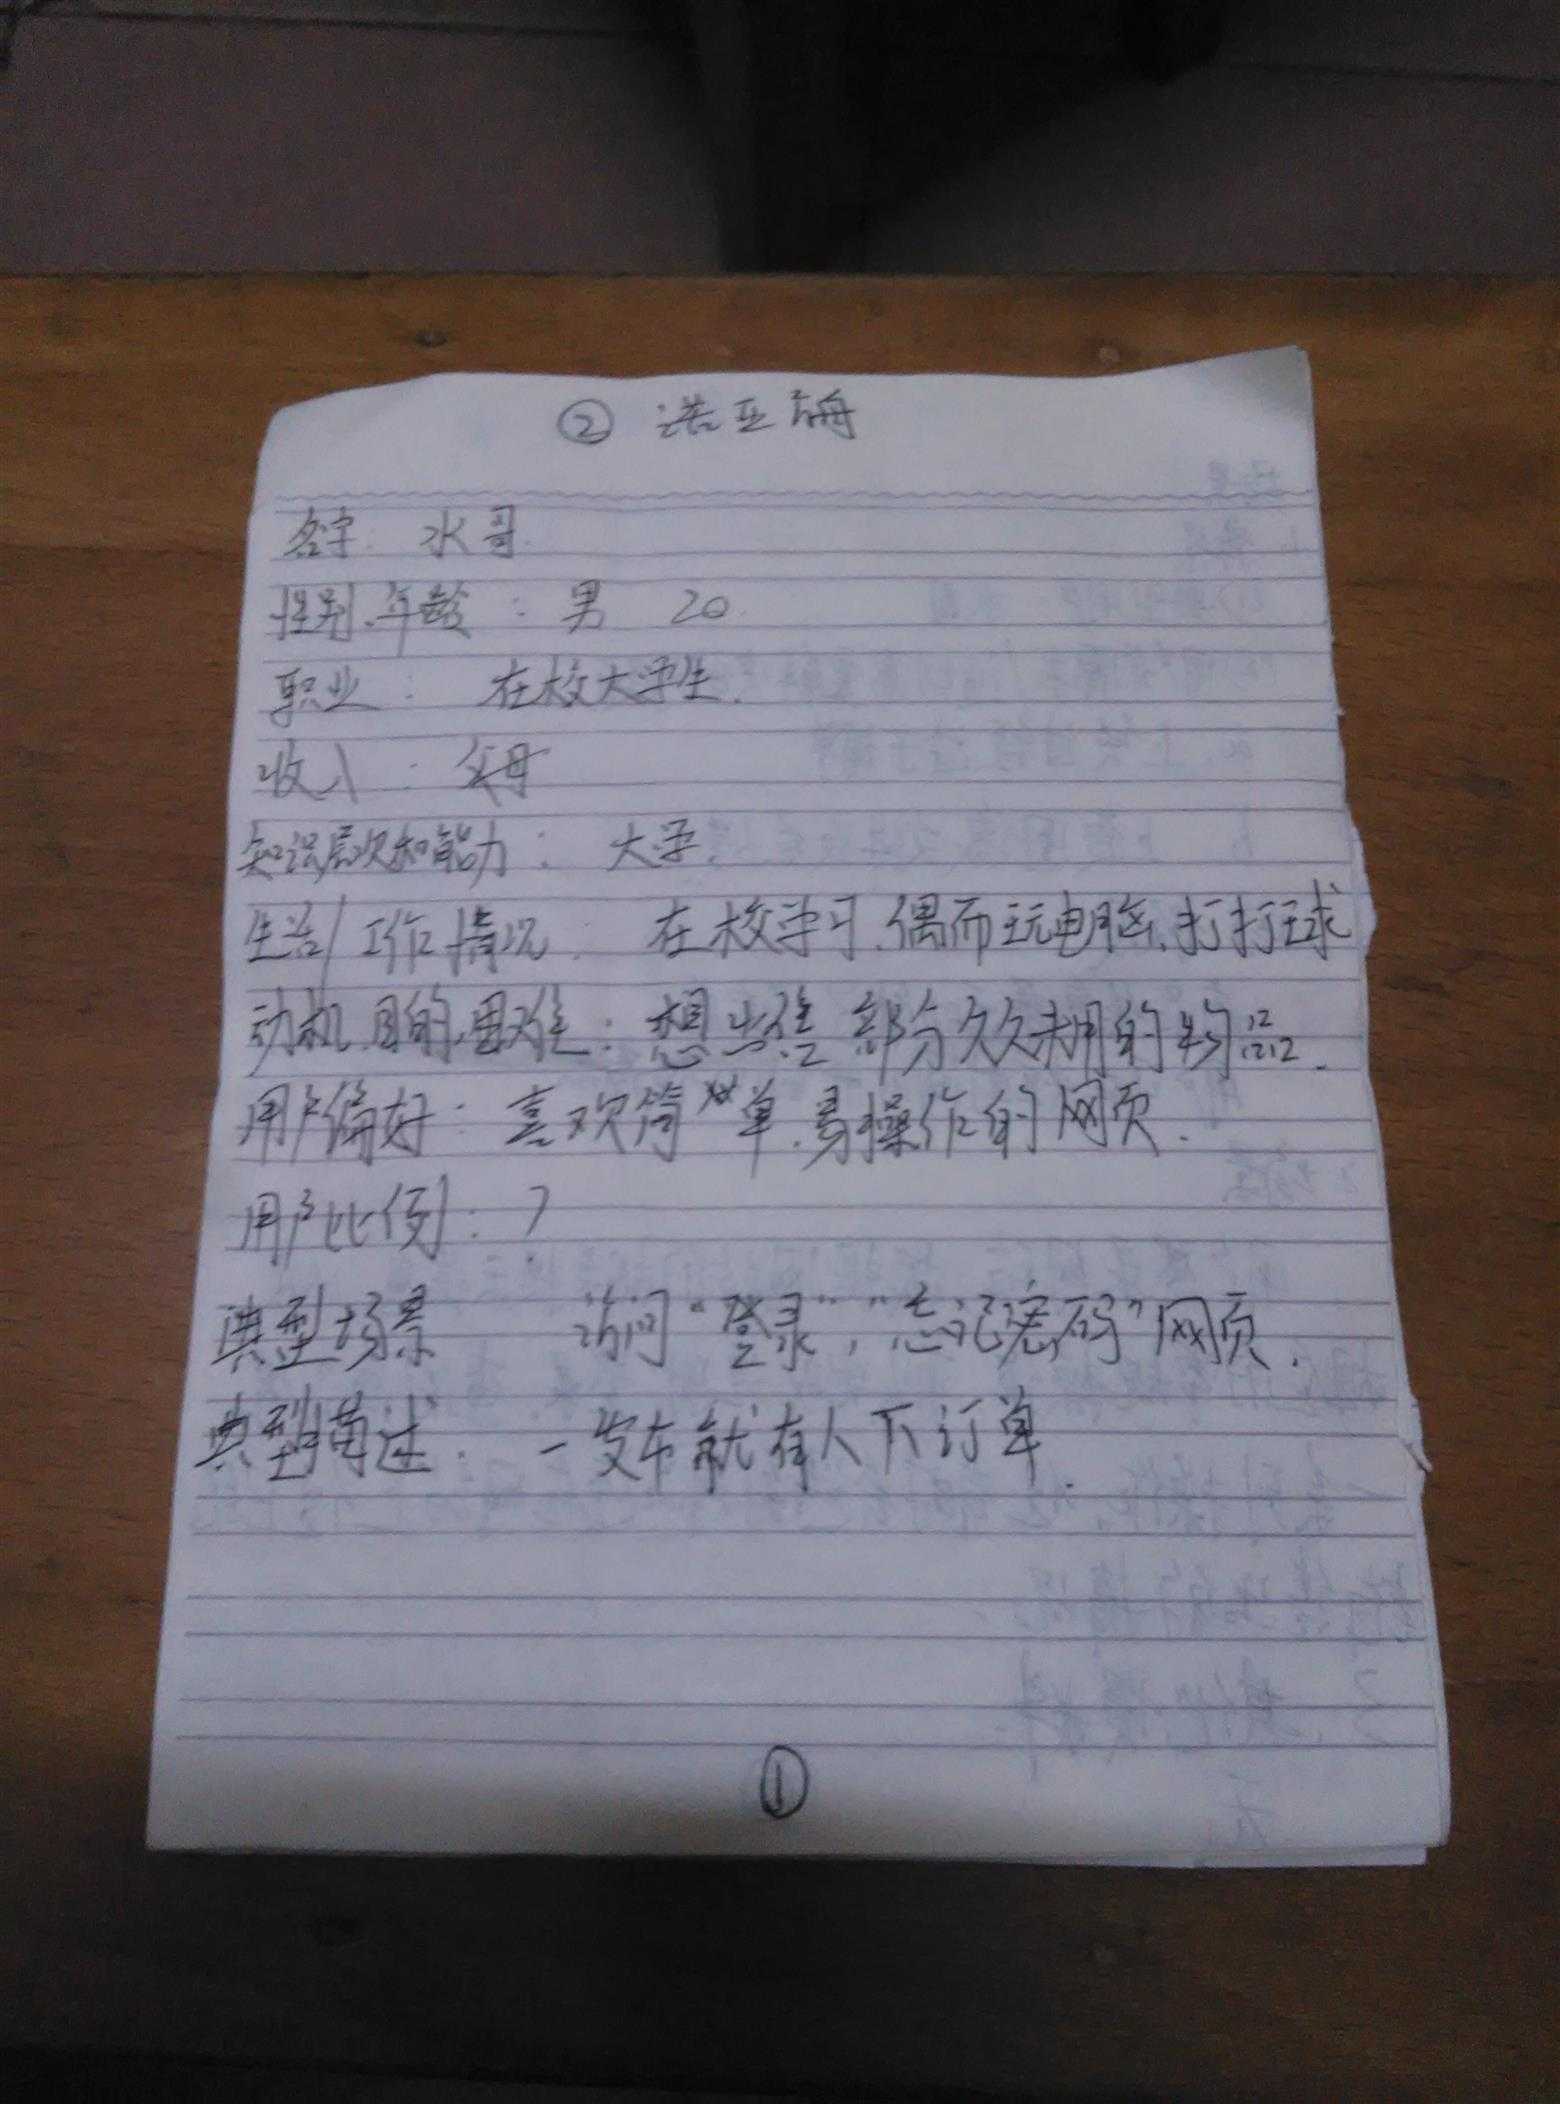 ② 诺亚
名字: 水哥.
性别、年龄: 男 20.
职业: 在校大学生.
收入: 父母
知识层次和能力: 大学.
生活/工作情况: 在校学习、偶而玩电脑、打打球
动机、目的、困难: 想出售部分久久未用的物品.
用户偏好: 喜欢简单、易操作的网页.
用户比例: ?
典型场景 访问"登录","忘记密码"网页.
典型描述: 一发布就有人下订单.
①